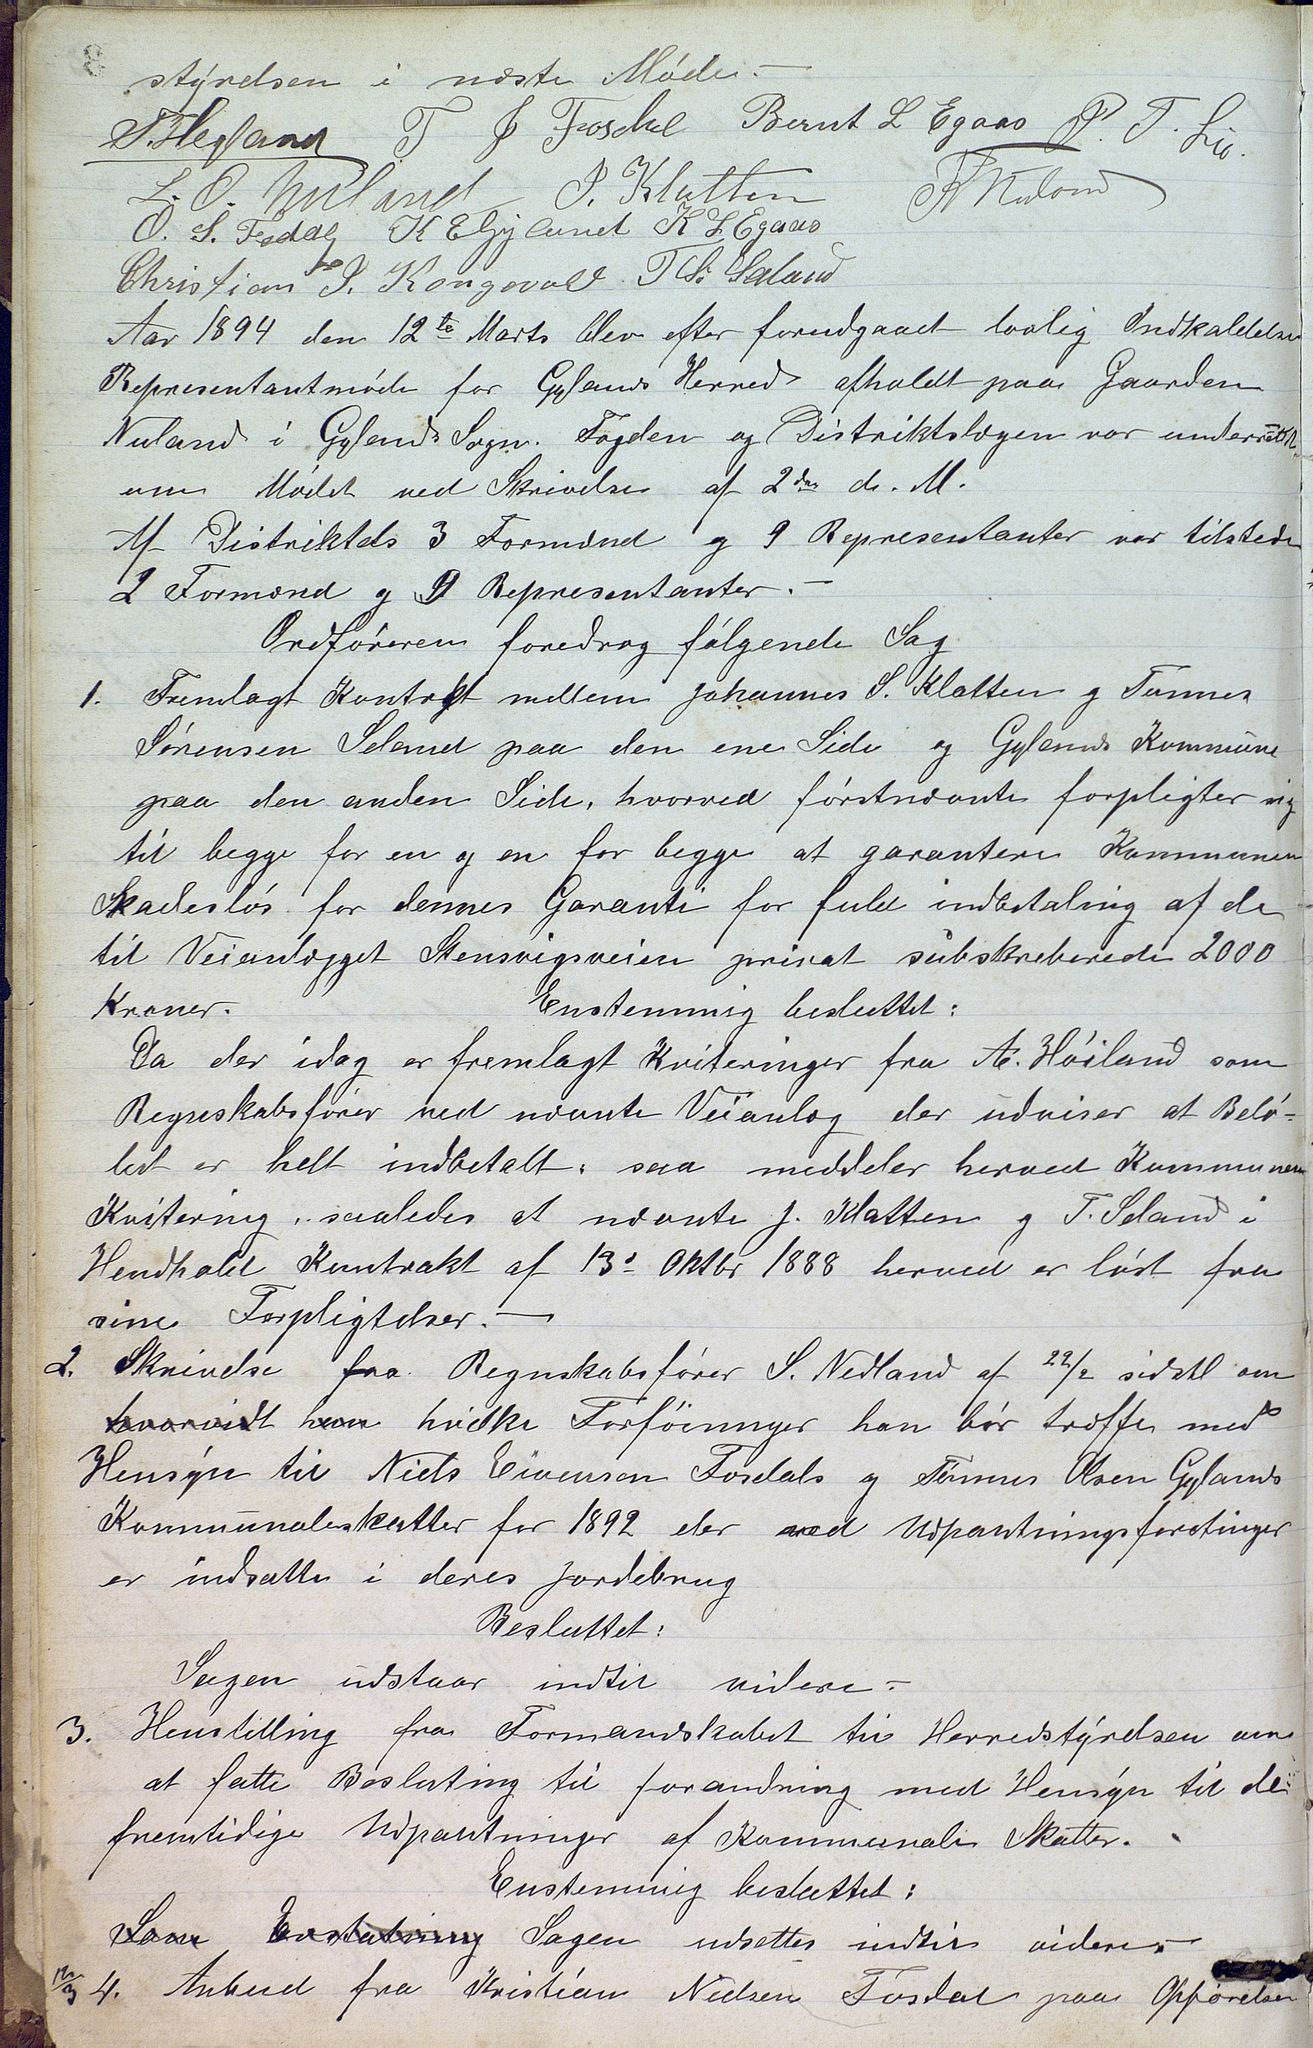 8
styrelsen i næste Møde. —
T. Hegland T J Fosdal Bernt L Egaas P. T. Lio.
L. O. Nuland J. Klatten A Nuland
O. S. Fedog K E Gyland K L Egaas
Christian P. Kongevold T S. Seland
Aar 1894 den 12te Marts blev efter forudgaaet lovlig Indkaldelse
Representantmøde for Gylands Herred afholdt paa Gaarden
Nuland i Gylands Sogn. Fogden og Distriktslægen var underrettet
om Mødet ved Skrivelse af 2den ds. M.
Af Distriktets 3 Formænd og 9 Representanter var tilstede
2 Formænd og 9 Representanter. —
Ordføreren foredrog følgende Sag
1. Fremlagt Kontrakt mellem Johannes S. Klatten og Tønnes
Sørensen Seland paa den ene Side og Gylands Kommune
paa den anden Side, hvorved førstnævnte forpligter sig
til begge for en og en for begge at garantere Kommunen
Skadesløs for dennes Garanti for fuld indbetaling af de
til Veianlægget Stensvigsveien privat subskreberede 2000
Kroner. Enstemmig besluttet:
Da der idag er fremlagt Kviteringer fra A. Høiland som
Regnskabsfører ved nævnte Veianlæg der udviser at Belø-
bet er helt indbetalt, saa meddeler herved Kommunen
Kvitering, saaledes at nævnte J. Klatten og T. Seland i
Hendhold Kontrakt af 13de Oktbr 1888 herved er løst fra
sine Forpligtelser. —
2. Skrivelse fra Regnskabsfører S. Nedland af 22/2 sidstl om
hvorvidt han hvilke Forføininger han bør træffe med
Hensyn til Niels Eivensen Fosdals og Tønnes Olsen Gylands
Kommuneskatter for 1892 der ved Udpantningsforetninger
er indsatte i deres Jordebrug
Besluttet:
Sagen udstaar indtil videre. —
3. Henstilling fra Formandskabet til Herredstyrelsen om
at fatte Beslutning til forandring med Hensyn til de
fremtidige Udpantninger af Kommunale Skatter.
Enstemmig besluttet:
Som Sagen udsettes indtil videre. —
12/3 4. Anbud fra Kristian Nielsen Fosdal paa Opførelsen